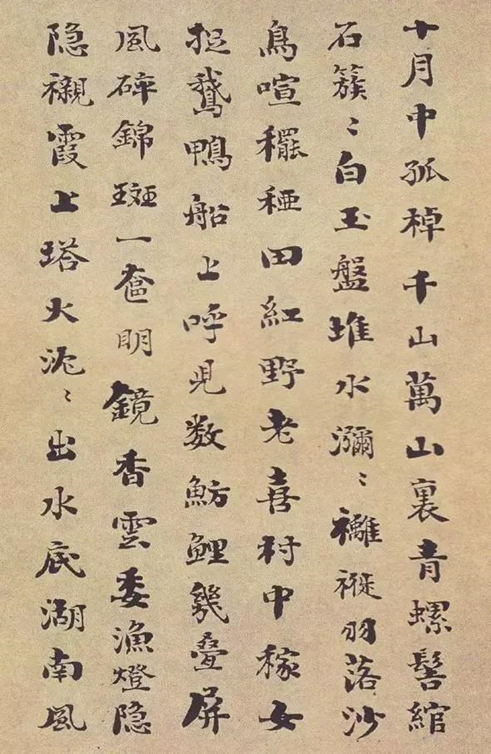 十月中孤棹千山萬山裏青螺髻綰
石簇〻白玉盤堆水瀰〻褵褷羽落沙
鳥喧䆉稏田紅野老喜村中稼女
捉鵞鴨船上呼児数魴鯉幾疊屏
風碎錦斑一奩明鏡香雲委漁燈隐
隐襯霞上塔火沉〻出水底湖南風